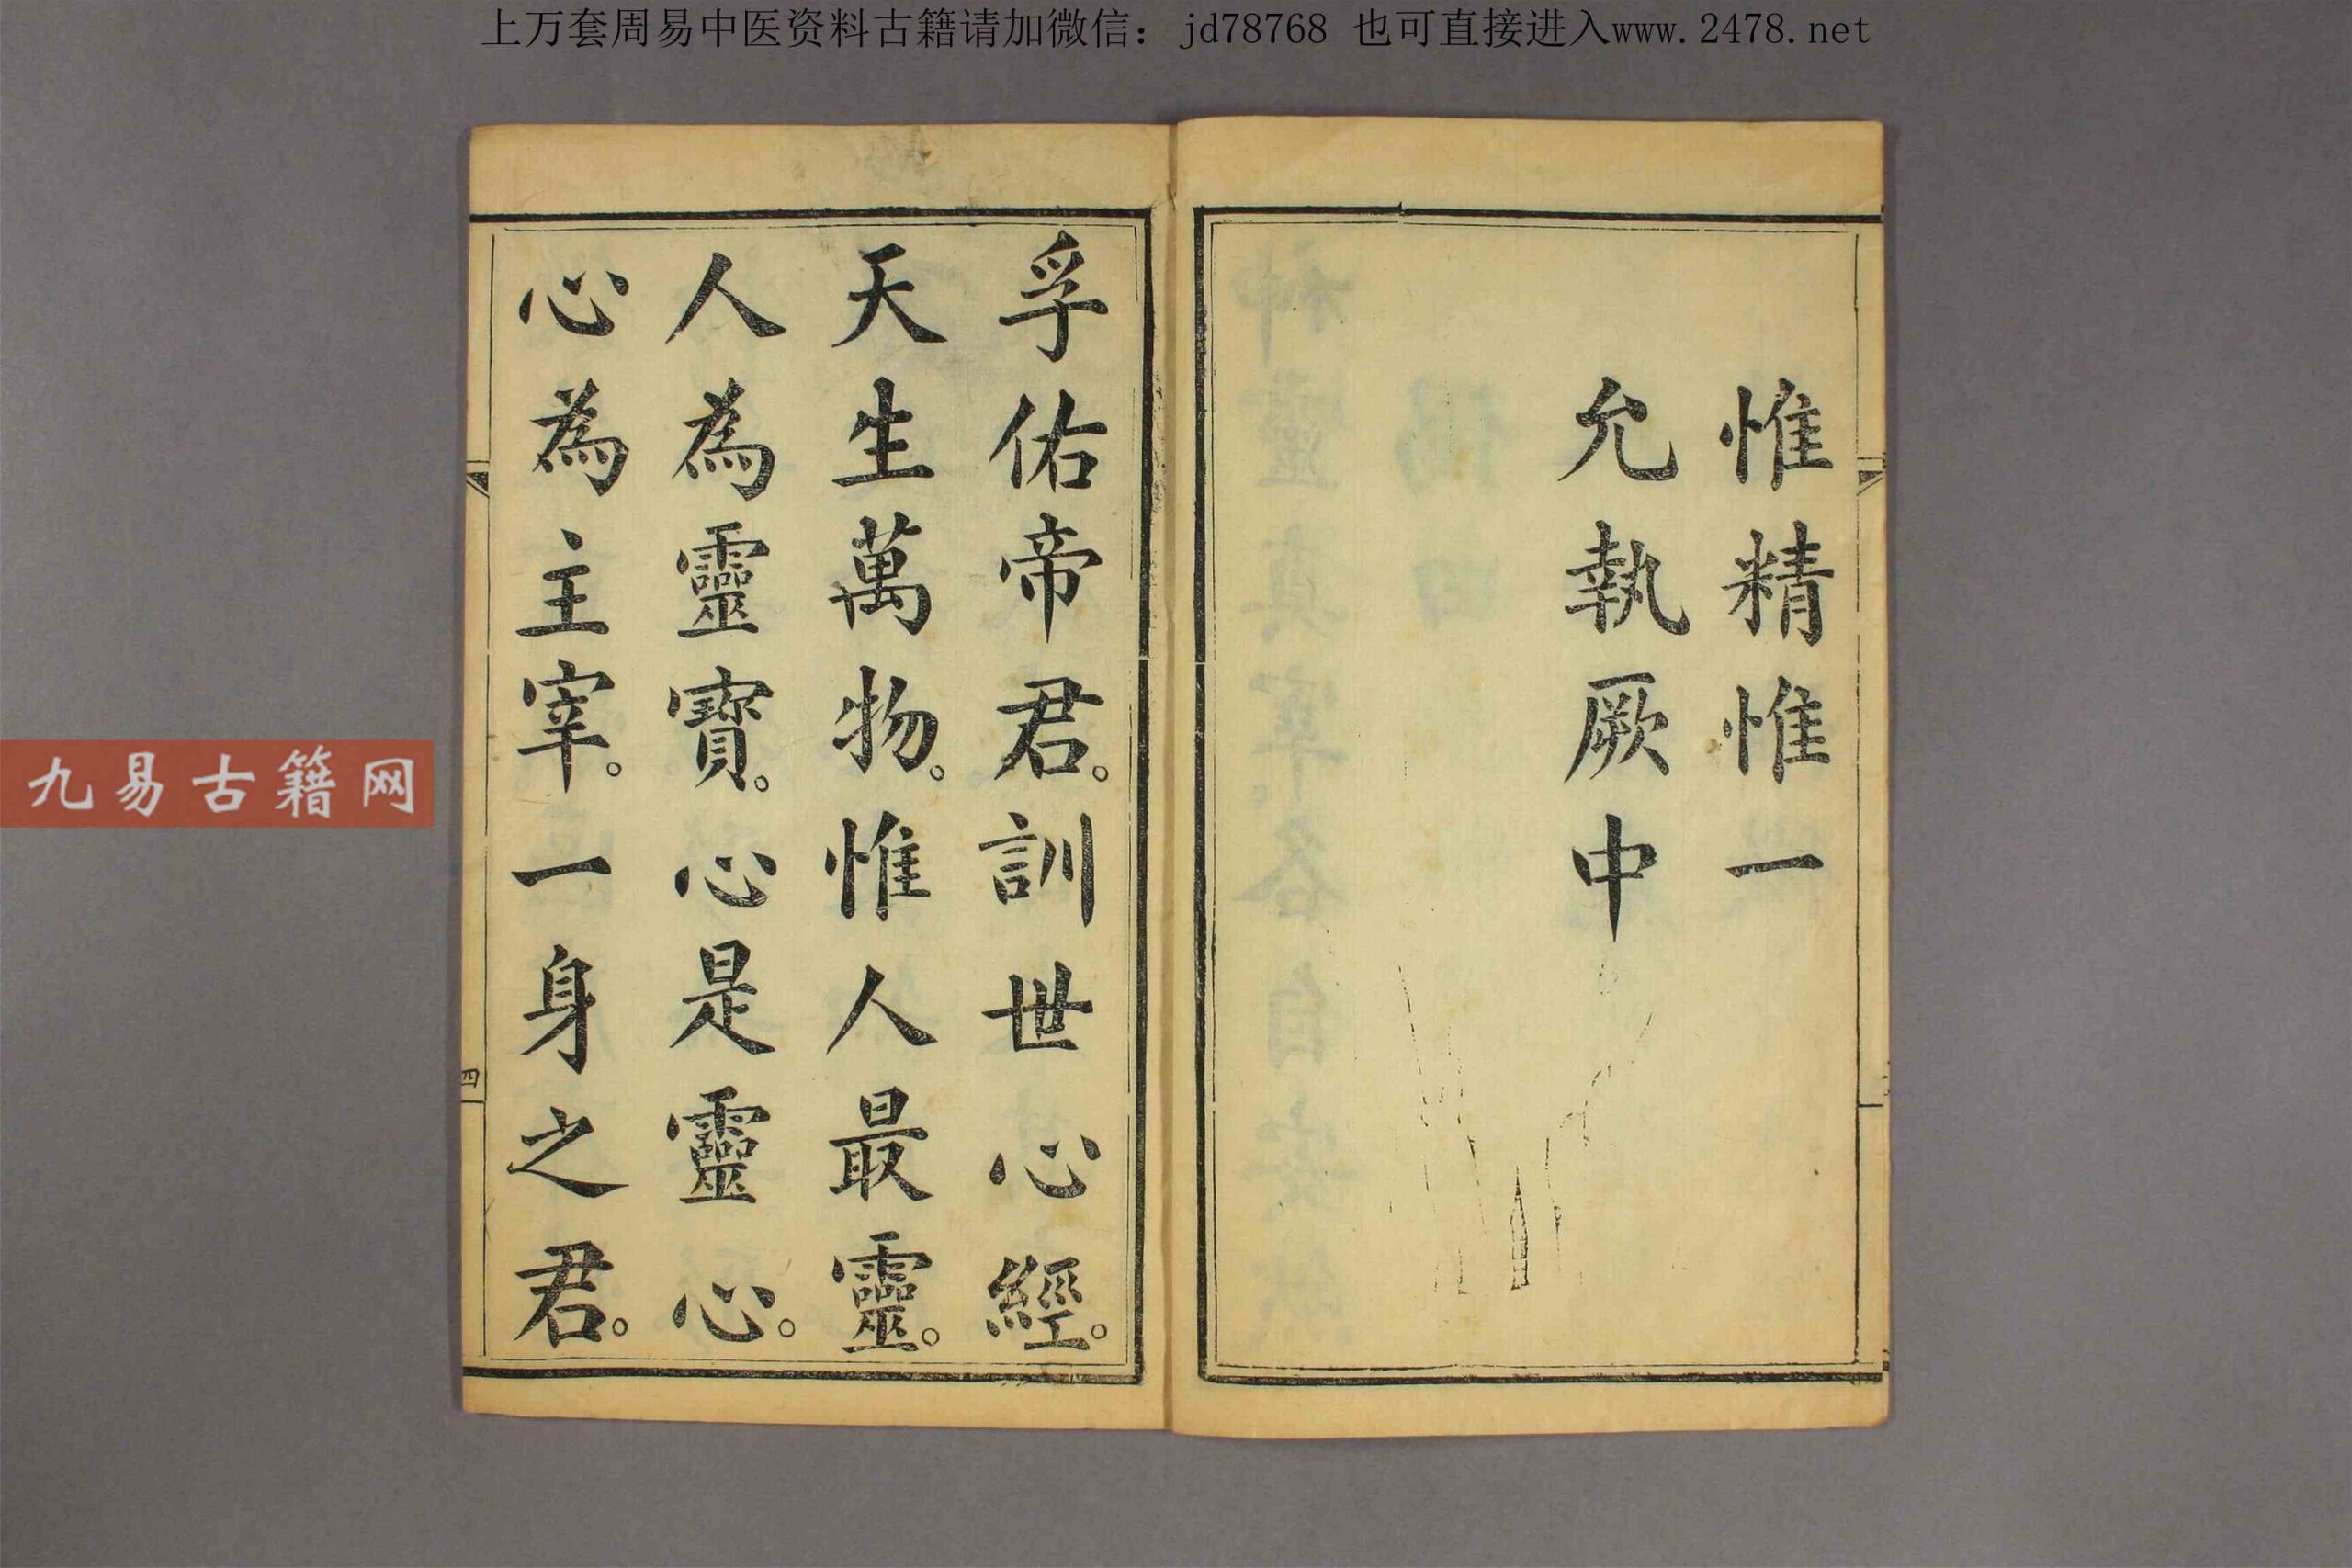 上万套周易中医资料古籍请加微信：jd78768 也可直接进入www.2478.net
惟精惟一
允執厥中
孚佑帝君。訓世心經。
天生萬物。惟人最靈。
人為靈寶。心是靈心。
心為主宰。一身之君。
四
九易古籍网